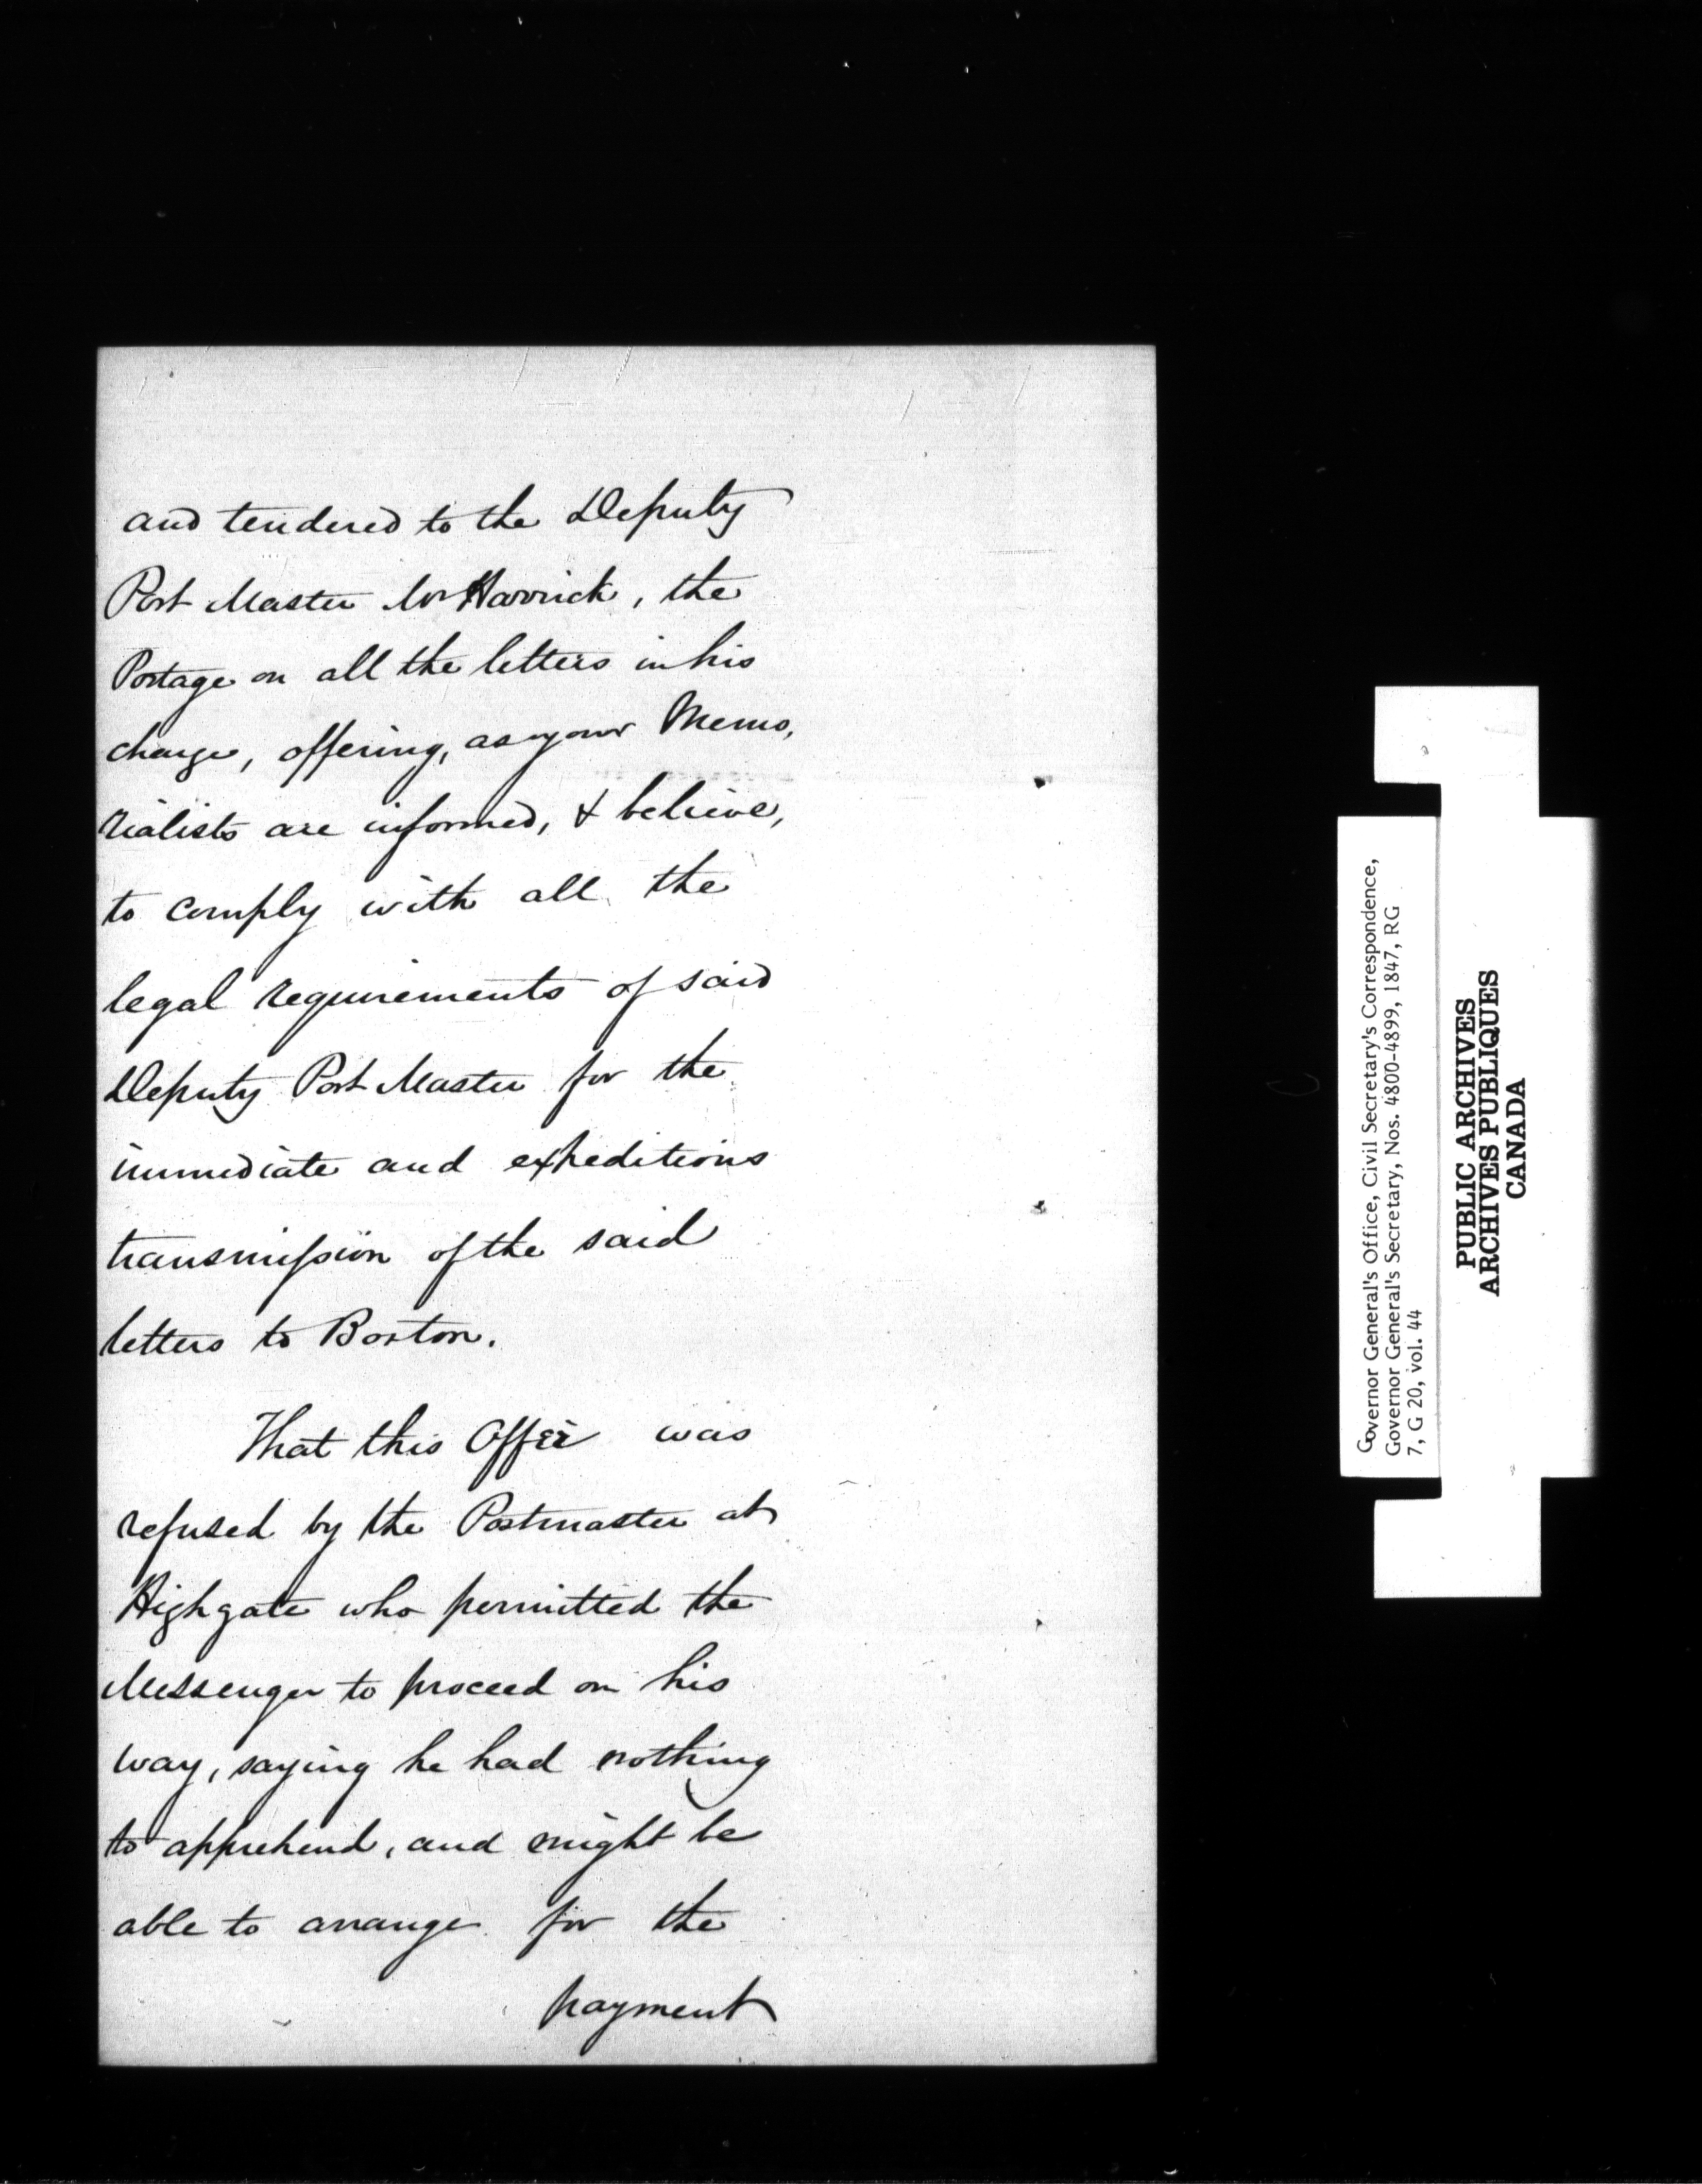 and tendered to the Deputy
Post Master Mr Harrick, the
Postage on all the letters in his
charge, offering, as your Memo,
rialists are informed, & believe,
to comply with all the
legal requirements of said
Deputy Post Master for the
immediate and expeditious
transmission of the said
letters to Boston.
That this Offer was
refused by the Postmaster at
Highgate who permitted the
Messenger to proceed on his
way, saying he had nothing
to apprehend, and might be
able to arrange for the
payment
Governor General's Office, Civil Secretary's Correspondence,
Governor General's Secretary, Nos. 4800-4899, 1847, RG
7, G 20, vol. 44
PUBLIC ARCHIVES
ARCHIVES PUBLIQUES
CANADA